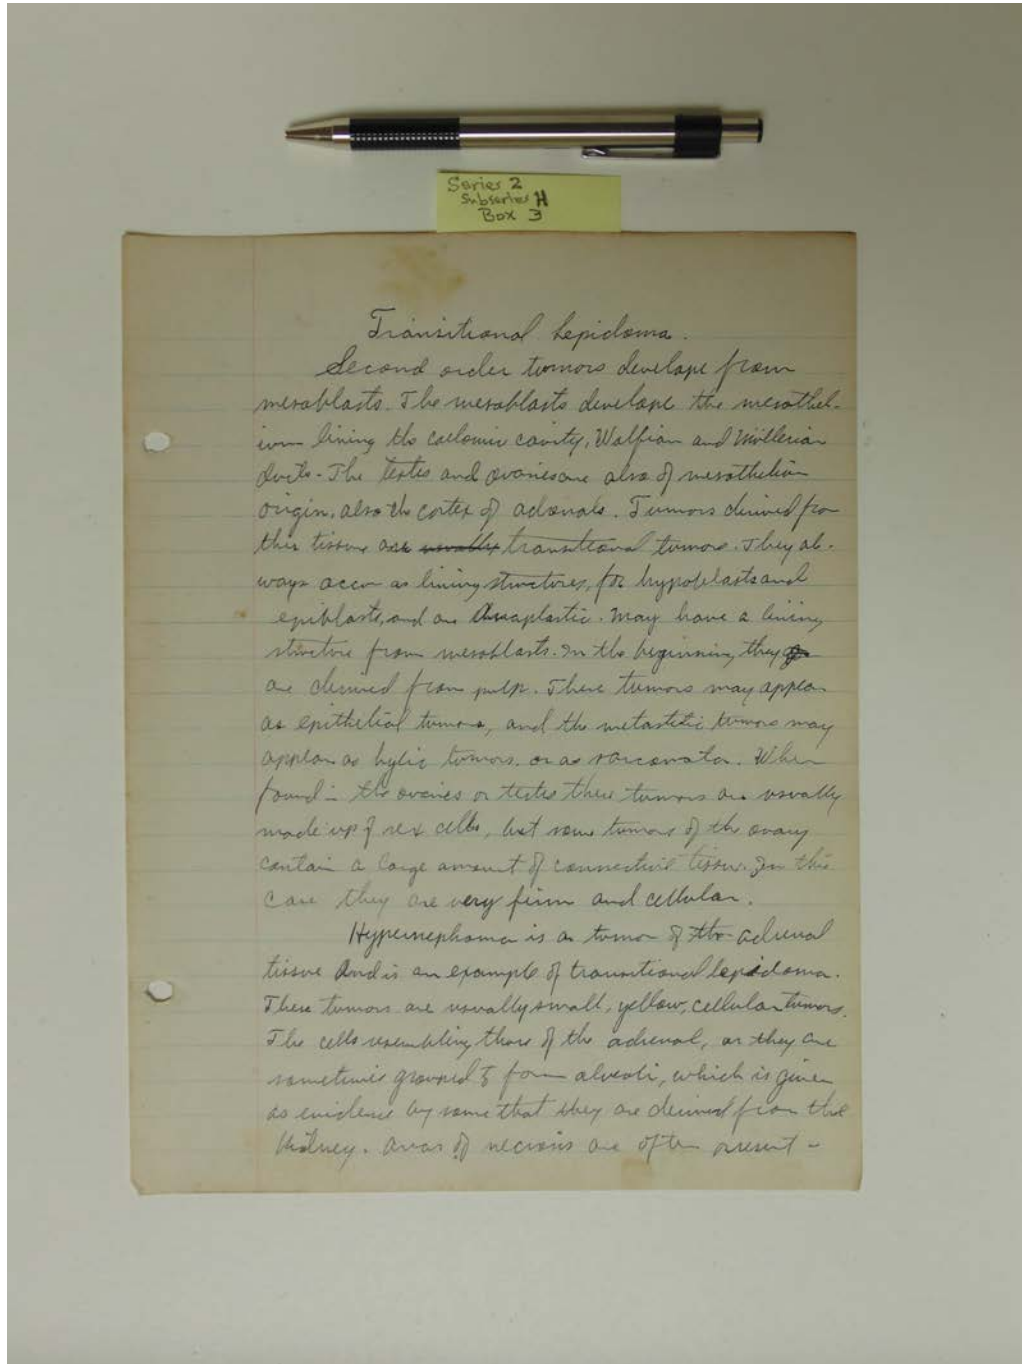 Series 2
Subseries H
Box 3
Transitional Lepidoma.
Second order tumors develope from
mesoblasts. The mesoblasts develope the mesothel-
ium lining the coelomic cavity, Wolfian and Müllerian
ducts - The testes and ovaries are also of mesothelium
origin, also the cortex of adrenals. Tumors derived from
this tissue are usually transitional tumors. They al-
ways occur as lining structures, for hypoblasts and
epiblasts, and are Anaplastic. May have a lining
structure from mesoblasts. In the beginning they
are derived from pulp. These tumors may appear
as epithelial tumors, and the metastatic tumors may
appear as hylic tumors, or as sarcomata. When
found in the ovaries or testes these tumors are usually
made up of sex cells, but some tumors of the ovary
contain a large amount of connective tissue. In this
case they are very firm and cellular.
Hypernephoma is a tumor of the adrenal
tissue And is an example of transitional lepidoma.
These tumors are usually small, yellow, cellular tumors.
The cells resembling those of the adrenal, or they are
sometimes grouped to form alveoli, which is given
as evidence by some that they are derived from the
kidney. Areas of necrosis are often present -